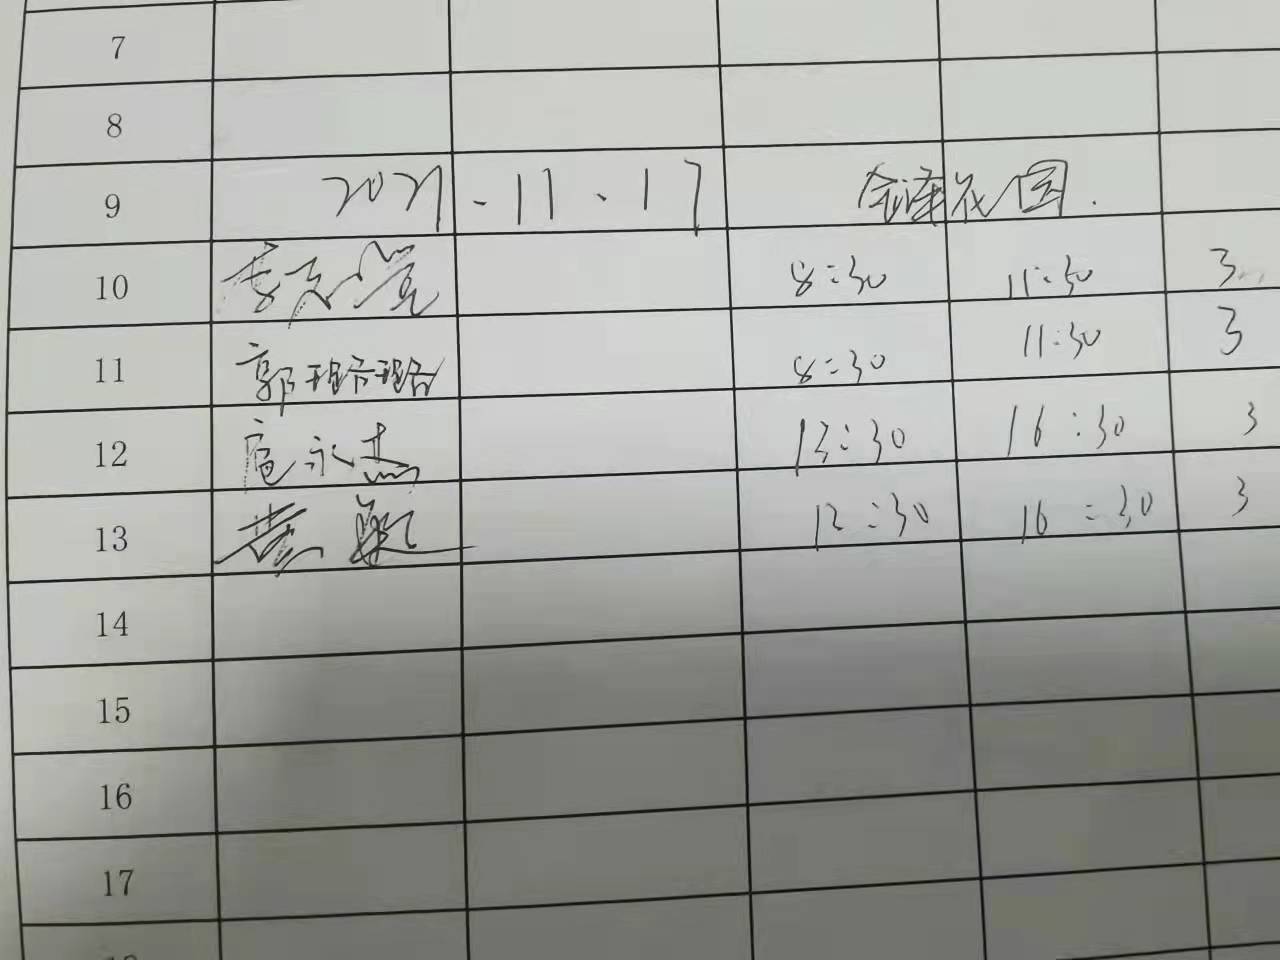 7
8
9 2021.11.17 金泽花园.
10 8:30 11:30 3
11 郭璐璐 8:30 11:30 3
12 扈永杰 13:30 16:30 3
13 黄 13:30 16:30 3
14
15
16
17